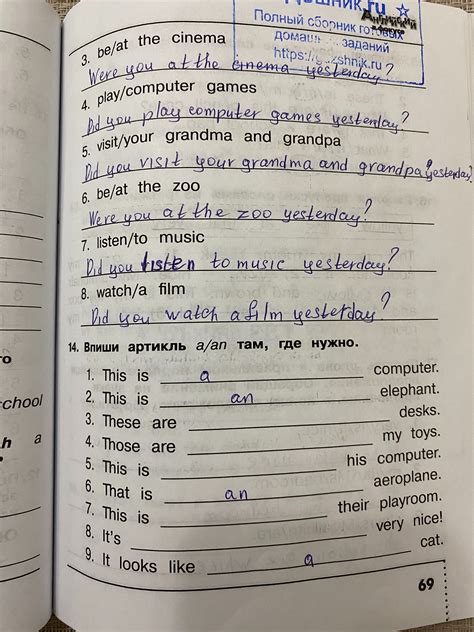 ☆
Полный сборник готовых
домаш заданий
3. be/at the cinema
Were you at the cinema yesterday?
4. play/computer games
Did you play computer games yesterday?
5. visit/your grandma and grandpa
Did you visit your grandma and grandpa yesterday?
6. be/at the zoo
Were you at the zoo yesterday?
7. listen/to music
Did you listen to music yesterday?
8. watch/a film
Did you watch a film yesterday?
14. Впиши артикль a/an там, где нужно.
1. This is a computer.
2. This is an elephant.
3. These are desks.
4. Those are my toys.
5. This is his computer.
6. That is an aeroplane.
7. This is their playroom.
8. It's very nice!
9. It looks like a cat.
69